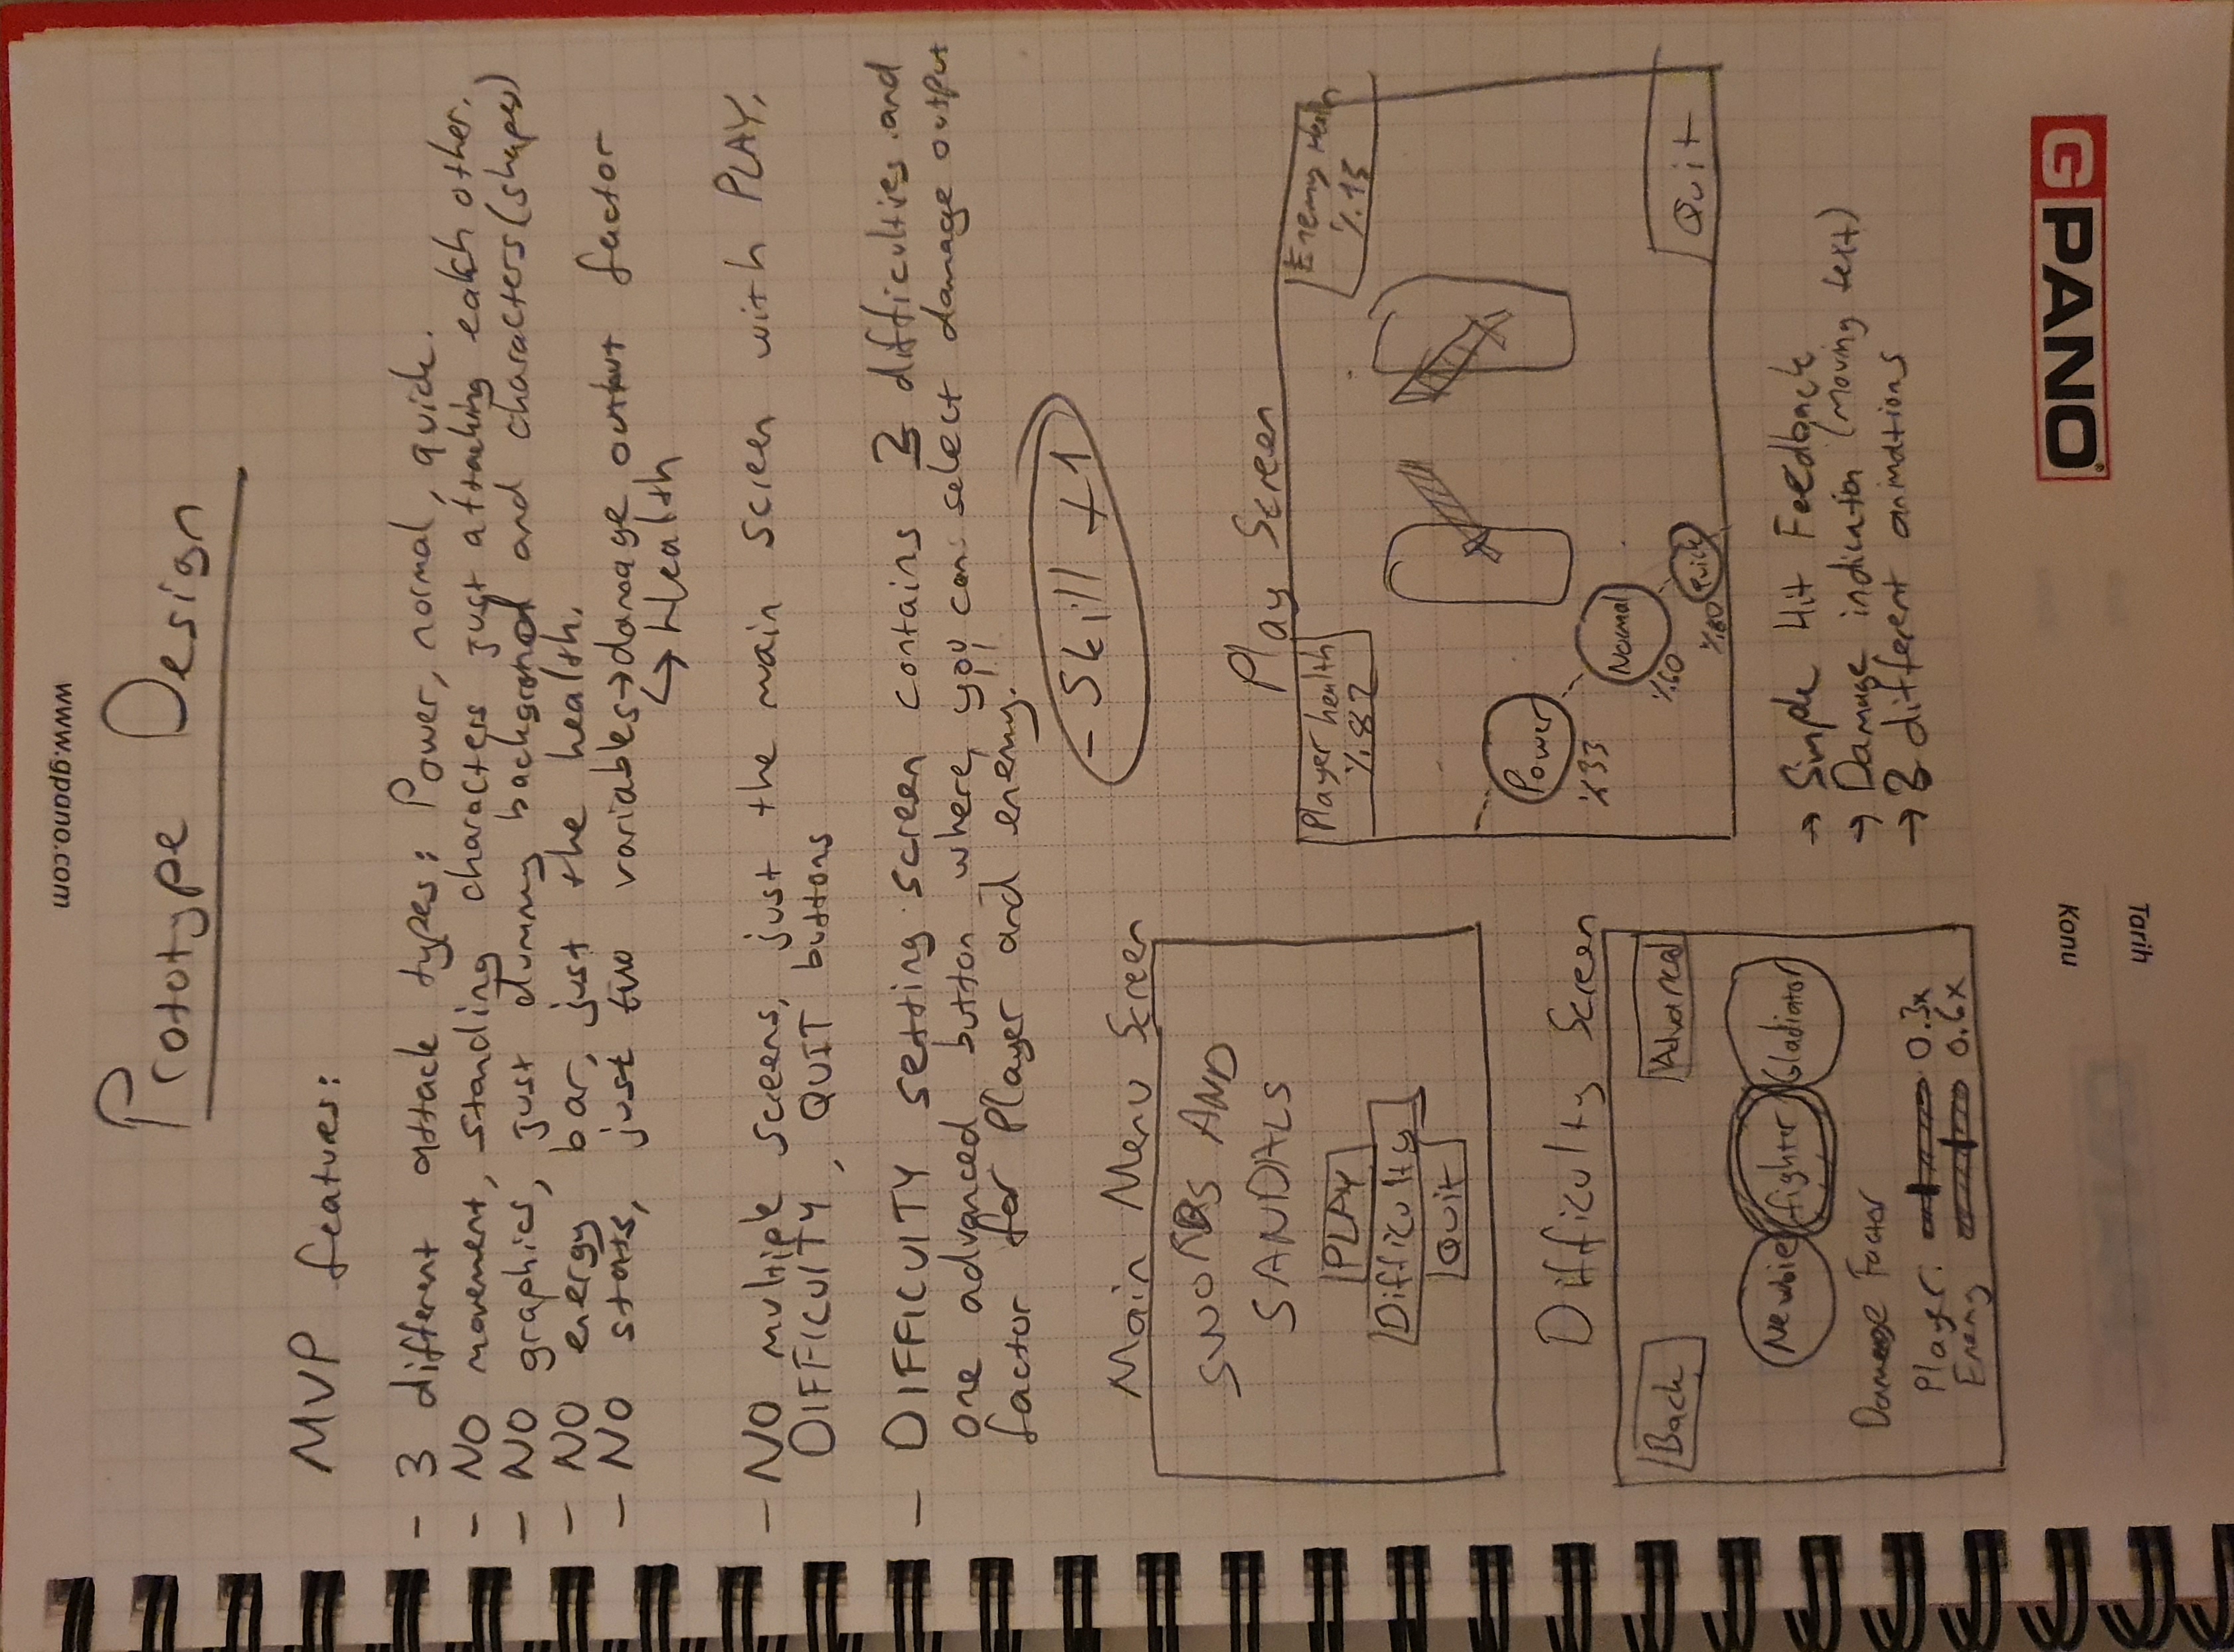 www.gpano.com
Prototype Design
MVP features:
- 3 different attack types: Power, normal, quick.
- NO movement, standing characters just attacking each other.
- NO graphics, just dummy background and characters (shapes)
- NO energy bar, just the health.
- NO stats, just two variables → damage output factor
↳ Health
- NO multiple screens, just the main screen with PLAY,
DIFFICULTY, QUIT buttons
- DIFFICULTY setting screen contains 3 difficulties and
one advanced button where you can select damage output
factor for Player and enemy.
- Skill +1
Main Menu Screen
SWORDS AND
SANDALS
PLAY
Difficulty
Quit
Play Screen
Player health
%82
Enemy Health
%15
Power
%33
Normal
%60
Quick
%80
Quit
Difficulty Screen
Back
Advanced
Newbie
fighter
Gladiator
Damage Factor
Player 0.3x
Enemy 0.6x
→ Simple Hit Feedback
→ Damage indicator (moving text)
→ 3 different animations
Konu
Tarih
GPANO